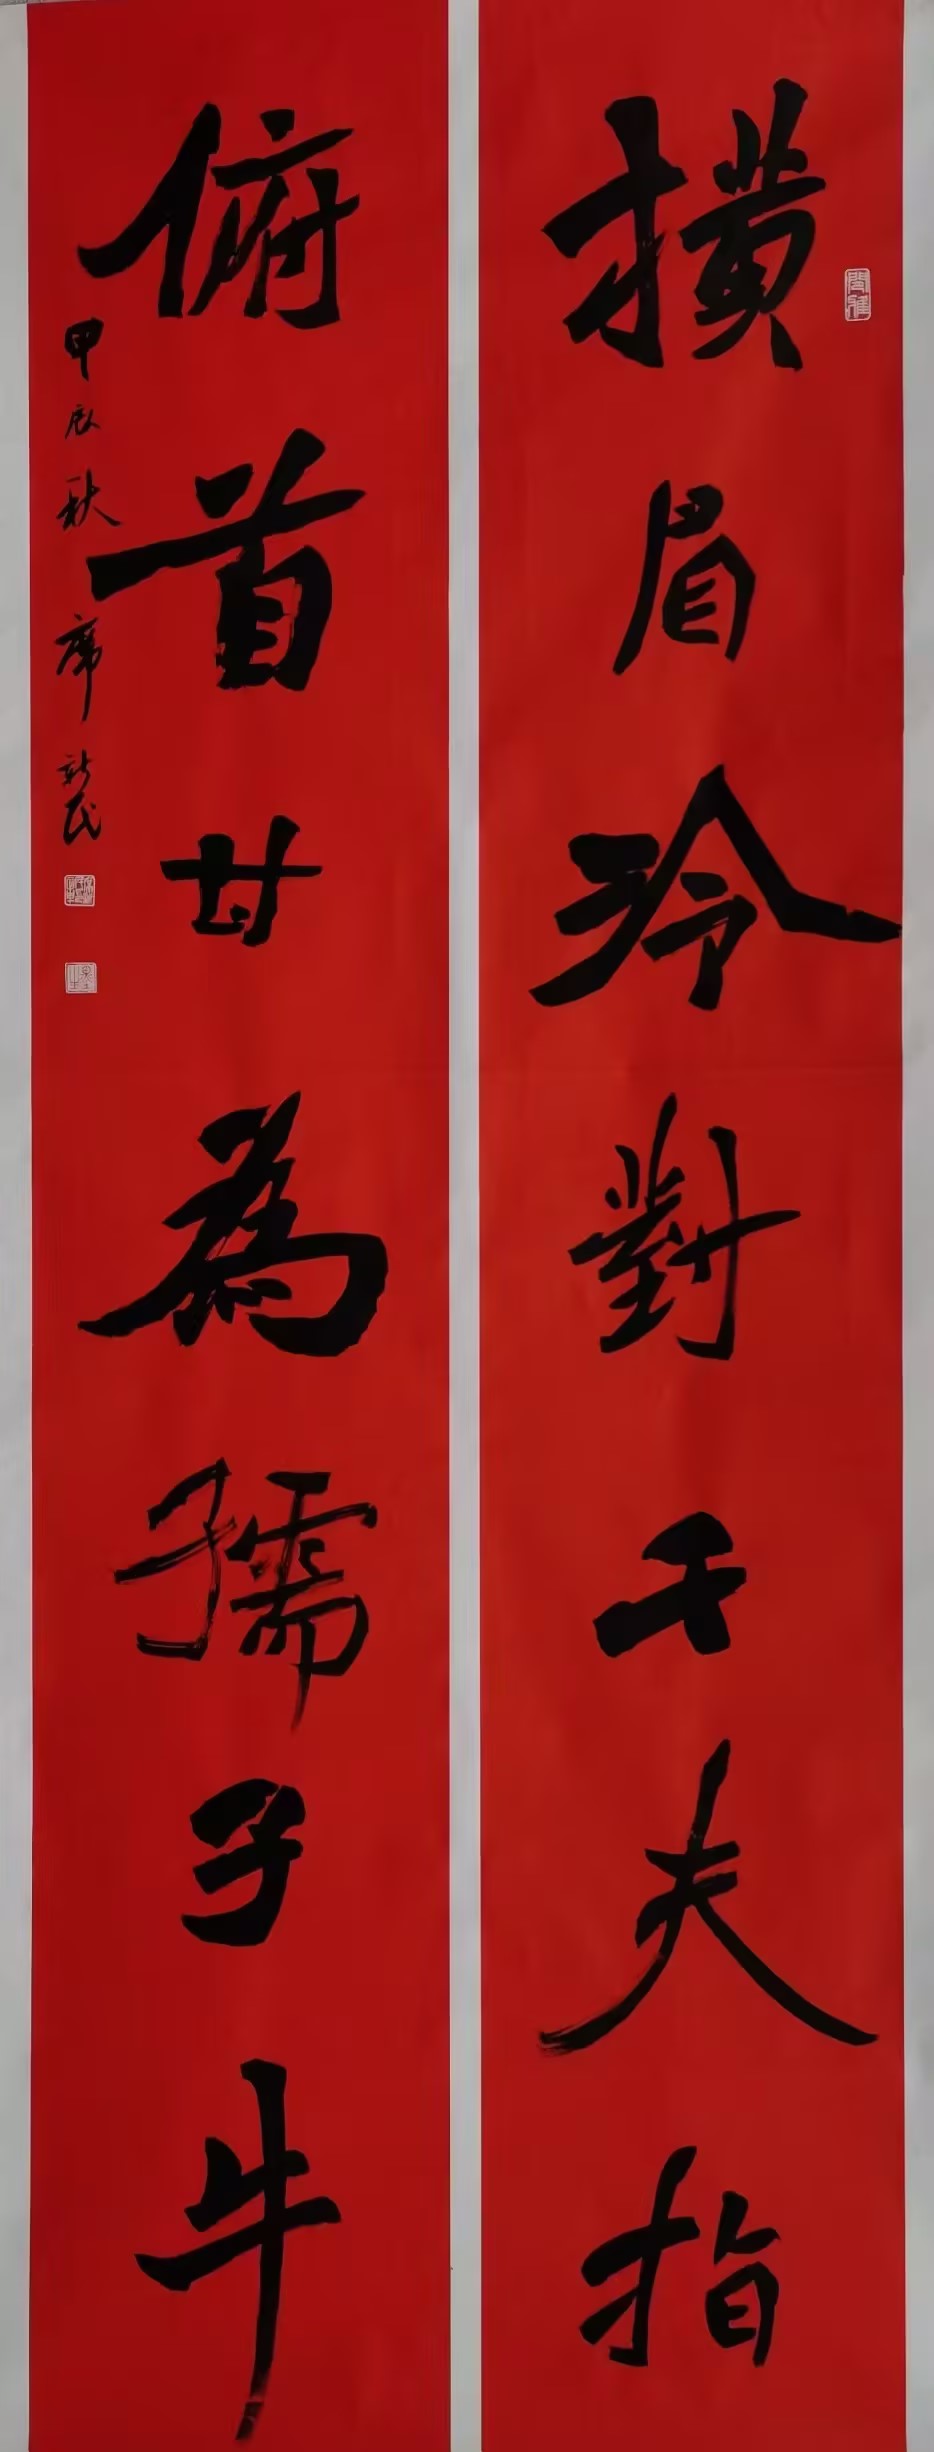 橫眉冷對千夫指
俯首甘為孺子牛
甲辰秋 席新民